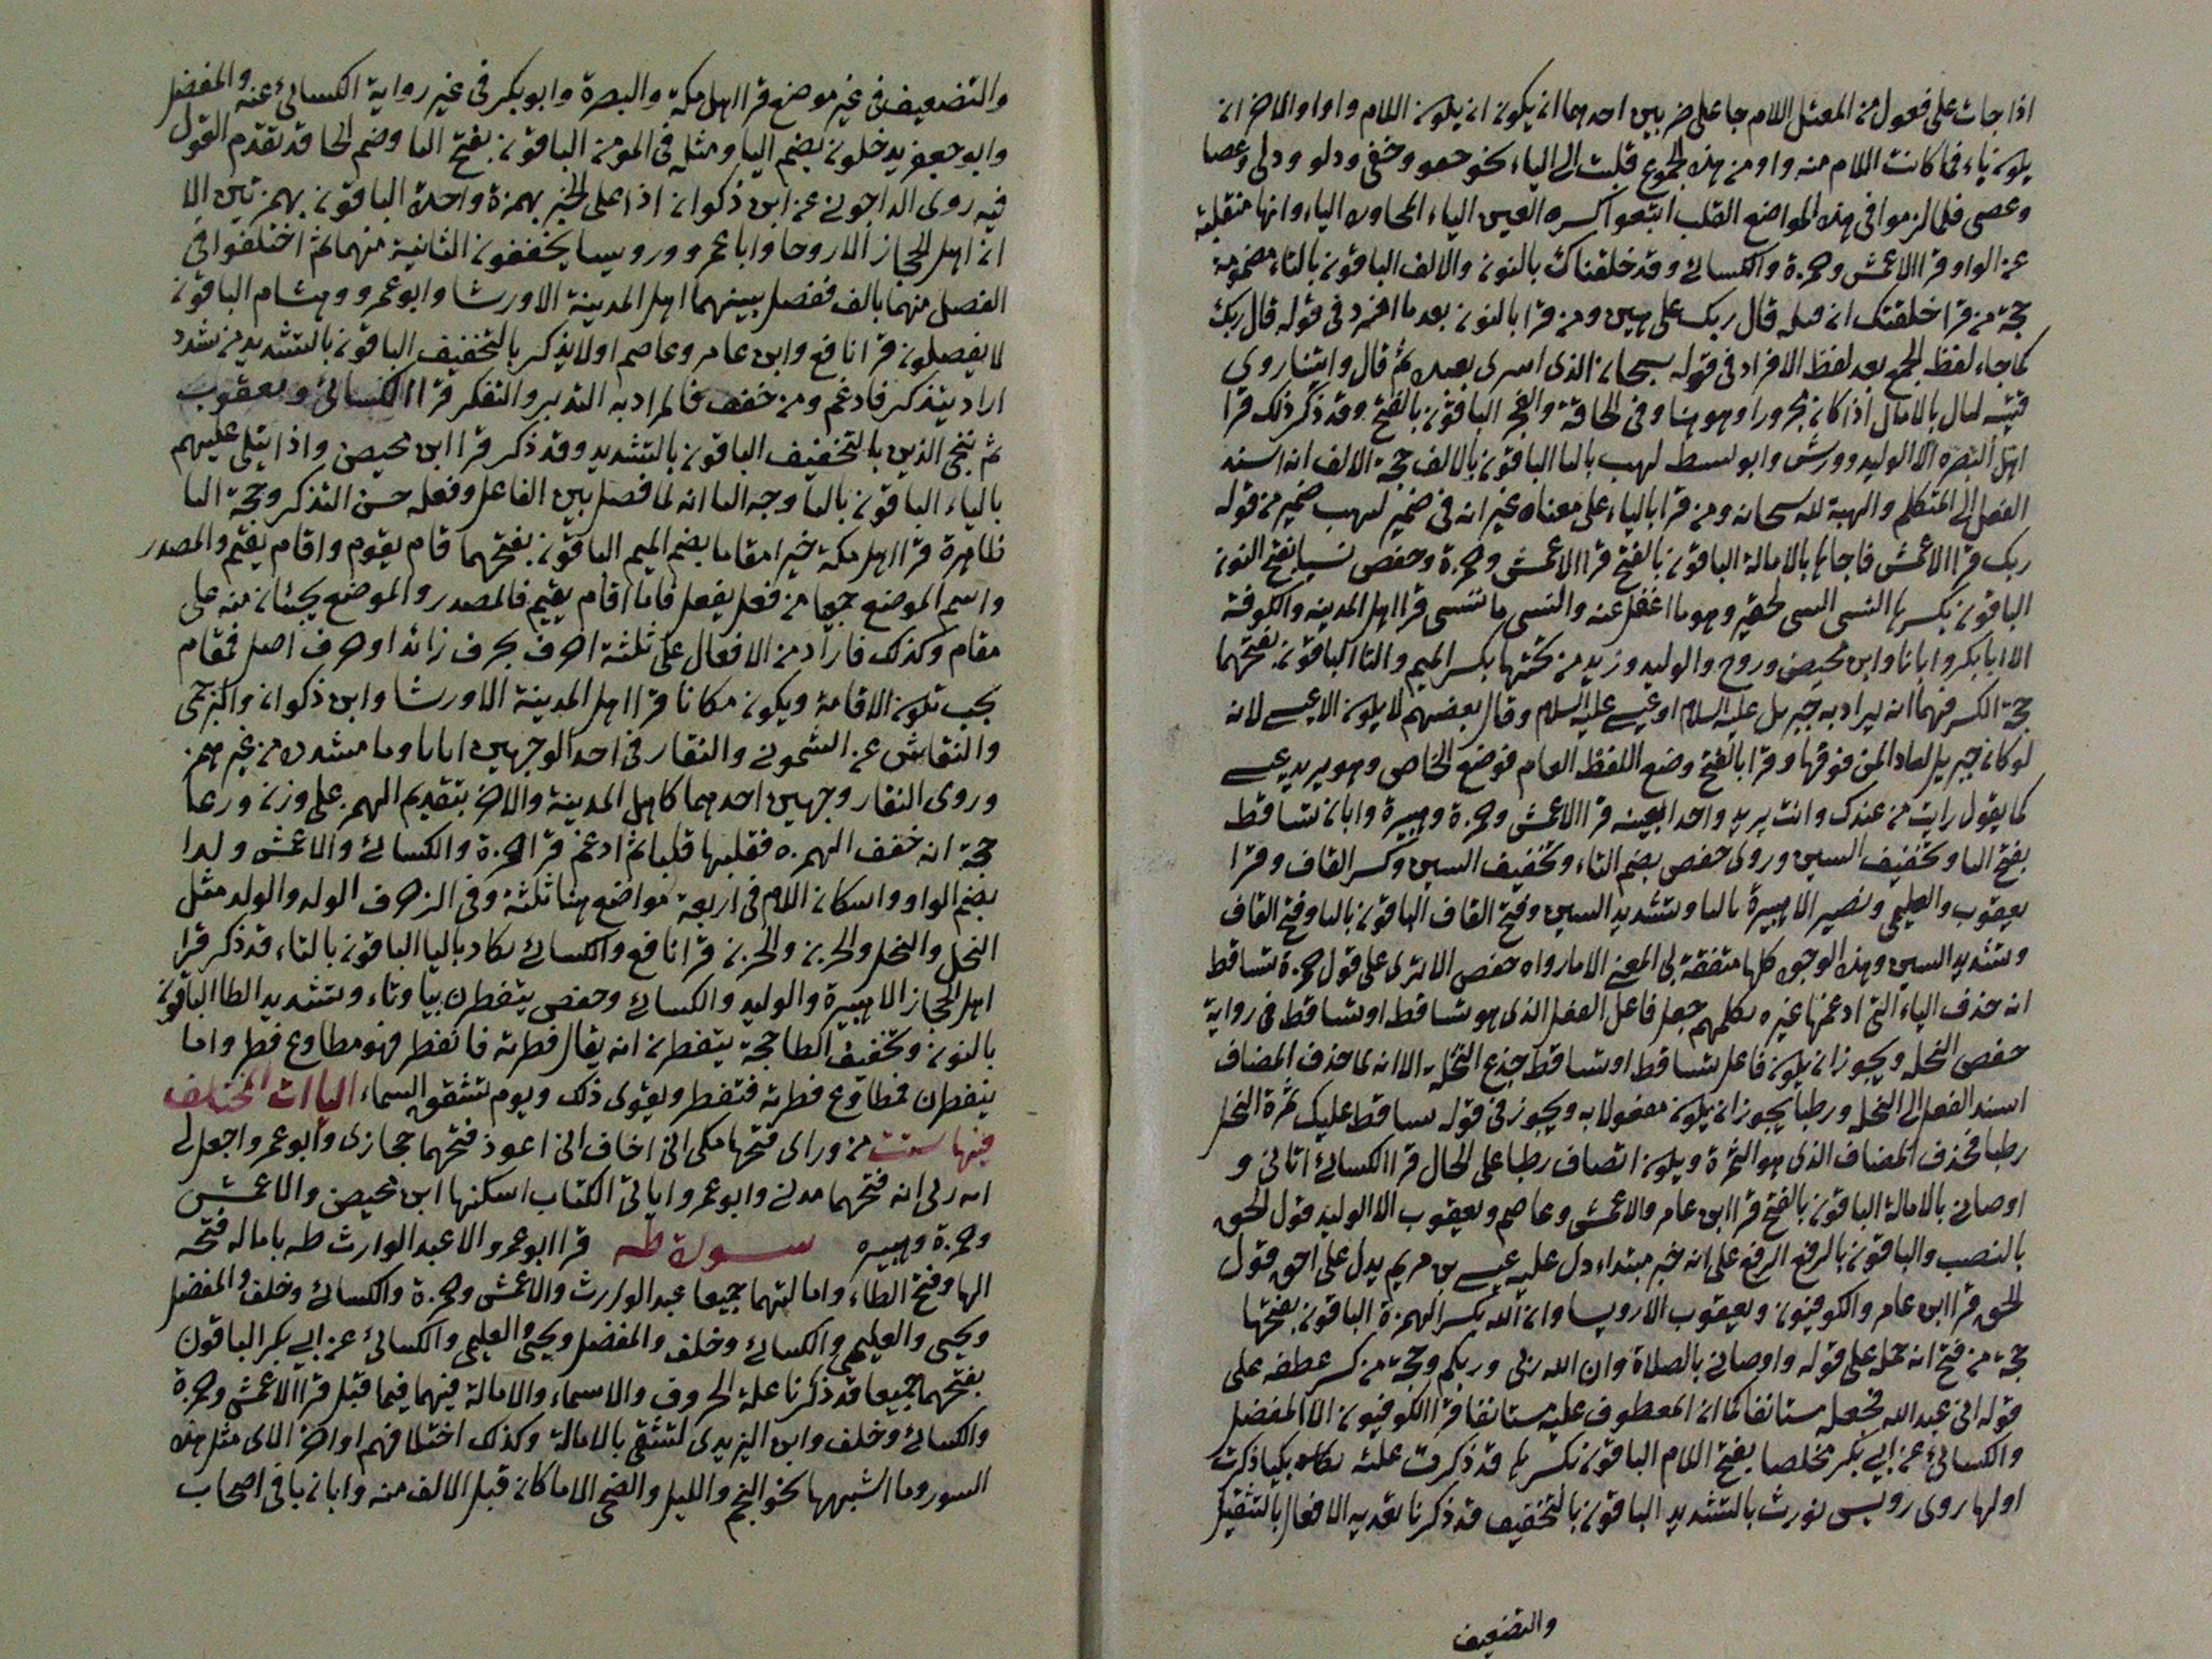 اذا جات على فعول من المعتل اللام جا على ضربين احدهما ان يكون ان يلون اللام واوا والاخر ان
يلون ياء فما كانت اللام منه واو من هذه الجموع قلبت الى الياء نحو حقو وحقى ودلو ودلى وعصا
وعصى فلما لزموا فى هذه المواضع القلب ابتعوا كسره العين الياء المحاوره الياء وانها منقلبة
عن الواو قرا الاعمش وحمزة والكسائى وقد خلقناك بالنون والالف الباقون بالتاء مضمومة
حجة من قرا خلقتك ان قبله قال ربك على هين ومن قرا بالنون بعد ما افرد فى قوله قال ربك
كما جاء لفظ الجمع بعد لفظ الافراد فى قوله سبحان الذى اسرى بعبده ثم قال واتينا روى
قتيبه ليال بالامال اذا كان مجرورا وهو هنا وفى الحاقة والفجر الباقون بالفتح وقد ذكر ذلك قرا
اهل البصره الا الوليد وورش وابو نسيط لهب باليا الباقون بالالف حجة الالف انه اسند
الفعل الى المتكلم والهبة لله سبحانه ومن قرا بالياء على معناه غير انه فى ضمير ليهب ضمير من قوله
ربك قرا الاعمش فاجاءها بالامالة الباقون بالفتح قرا الاعمش وحمزة وحفص نسيا بفتح النون
الباقون بكسرها النسى النسى الحقير وهو ما اغفل عنه والنسى ما ننسى قرا اهل المدينه والكوفة
الا ابا بكر وابانا وابن محيصن وروح والوليد وزيد من تحتها بكسر الميم والتا الباقون بفتحهما
حجة الكسر فهما انه يراد به جبريل عليه السلام او عيسى عليه السلام وقال بعضهم لا يلون الا عيسى لانه
لو كان جبريل لناداها من فوقها وقرا بالفتح وضع اللفظ العام فوضع الخاص وهو يريد عيسى
كما يقول رايت من عندك وانت يريد واحدا بعينه قرا الاعمش وحمزة وهبيرة وابان تساقط
بفتح التا وتخفيف السين وروى حفص بضم التاء وتخفيف السين وكسر القاف وقرا
يعقوب والعليمى ونصير الا هبيرة باليا وتشديد السين وفتح القاف الباقون بالتا وفتح القاف
وتشديد السين وهذه الوجوه كلها متفقة فى المعنى الا ما رواه حفص الا ترى على قول حمزة تساقط
انه حذف الياء التى ادغمها غيره وكلهم جعل فاعل الفعل الذى هو تساقط او تساقط فى رواية
حفص النخله ويجوز ان يلون فاعل تساقط او تساقط جذع النخلة الا انه لما حذف المضاف
اسند الفعل الى النخل ورطبا يجوز ان يلون مفعولا به ويجوز فى قوله ساقط عليك ثمرة النخل
رطبا فحذف المضاف الذى هو الثمرة ويلون انتصاف رطبا على الحال قرا الكسائى اتانى و
اوصانى بالامالة الباقون بالفتح قرا ابن عامر والاعمش وعاصم ويعقوب الا الوليد قول الحق
بالنصب والباقون بالرفع الرفع على انه خبر مبتداء دل عليه عيسى بن مريم يدل على احق قول
الحق قرا ابن عامر والكوفيون ويعقوب الا رويسا وان الله بكسر الهمزة الباقون بفتحها
حجة من فتح انه حمله على قوله واوصانى بالصلاة وان الله ربى وربكم وحجة من كسر عطفه على
قوله انى عبد الله فجعل مستانفا كما ان المعطوف عليه مستانفا قرا الكوفيون الا المفضل
والكسائى عن ابى بكر مخلصا بفتح اللام الباقون بكسرها قد ذكرت علته بكيا ذكرت
اولها روى رويس نورث بالتشديد الباقون بالتخفيف قد ذكرنا تعديه الافعال بالتثقيل
والتضعيف
والتضعيف فى غير موضع قرا اهل مكة والبصرة وابو بكر فى غير رواية الكسائى عنه والمفضل
وابو جعفر يدخلون بضم اليا ومثله فى المومن الباقون بفتح اليا وضم الخا قد تقدم القول
فيه روى الداجونى عن ابن ذكوان اذا على الخبر بهمزة واحدة الباقون بهمزتين الا
ان اهل الحجاز الا روحا وابا عمرو ورويسا يخففون الثانية منهما ثم اختلفوا فى
الفصل منهما بالف ففصل بينهما اهل المدينة الا ورشا وابو عمرو وهشام الباقون
لا يفصلون قرا نافع وابن عامر وعاصم اولا يذكر بالتخفيف الباقون بالتشديد من شدد
اراد يتذكر فادغم ومن خفف فالمراد به التدبر والتفكر قرا الكسائى ويعقوب
ثم ننجى الذين بالتخفيف الباقون بالتشديد وقد ذكر قرا ابن محيصن واذا يتلى عليهم
بالياء الباقون بالتا وجه اليا انه لما فصل بين الفاعل وفعله حسن التذكر وحجة التا
ظاهرة قرا اهل مكة خير مقاما بضم الميم الباقون بفتحهما قام يقوم واقام يقيم والمصدر
واسم الموضع جميعا من فعل يفعل فاما اقام يقيم فالمصدر والموضع يجيئان منه على
مقام وكذلك فازاد من الافعال على ثلثة احرف بحرف زائد او حرف اصل فمقام
يجب تلون الاقامة ويكون مكانا قرا اهل المدينة الا ورشا وابن ذكوان والبرجمى
والنقاش عن الشمونى والنقار فى احد الوجهين اثاثا وريا مشدده من غير همز
وروى النقار وجهين احدهما كاهل المدينة والاخر بتقديم الهمز على وزن وريعا
حجة انه خفف الهمزه فقلبها قلبا ثم ادغم قرا حمزة والكسائى والاعمش ولدا
بضم الواو واسكان اللام فى اربعة مواضع هنا ثلثة وفى الزخرف الولد والولد مثل
النخل والنخل والحزن والحزن قرا نافع والكسائى يكاد باليا الباقون بالتاء قد ذكر قرا
اهل الحجاز الا هبيرة والوليد والكسائى وحفص يتفطرن بيا وتاء وتشديد الطا الباقون
بالنون وتخفيف الطا حجة يتفطرن انه يقال فطرته فانفطر فهو مطاوع فطر واما
ينفطرن فمطاوع فطرته فتفطر ويقوى ذلك ويوم تشقق السماء الياات المختلف
فيها ست من وراى فتحها مكى انى اخاف انى اعوذ فتحهما حجازى وابو عمرو اجعل لى
ايه ربى انه فتحهما مدنى وابو عمرو اتانى الكتاب اسكنها ابن محيصن والاعمش
وحمزة وهبيره سورة طه قرا ابو عمرو الا عبد الوارث طه بامالة فتحه
الها وفتح الطاء وامالتهما جميعا عبد الوارث والاعمش وحمزة والكسائى وخلف والمفضل
ويحيى والعليمى والكسائى وخلف والمفضل ويحيى والعليمى والكسائى عن ابى بكر الباقون
بفتحهما جميعا قد ذكرنا علة الحروف والاسماء والامالة فيهما فيما قبل قرا الاعمش وحمزة
والكسائى وخلف وابن اليزيدى لتشقى بالامالة وكذلك اختلافهم اواخر الاى مثل هذه
السور وما اشبهها نحو النجم والليل والضحى الا ما كان قبل الالف منه وابان باقى اصحاب